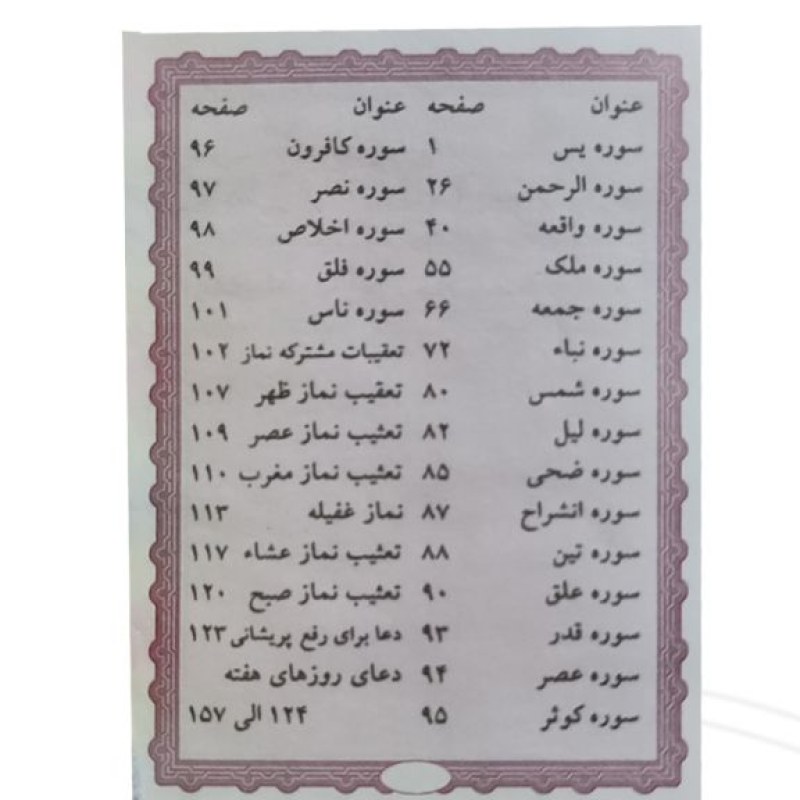 عنوان صفحه
سوره یس ۱
سوره الرحمن ۲۶
سوره واقعه ۴۰
سوره ملک ۵۵
سوره جمعه ۶۶
سوره نباء ۷۲
سوره شمس ۸۰
سوره لیل ۸۲
سوره ضحی ۸۵
سوره انشراح ۸۷
سوره تین ۸۸
سوره علق ۹۰
سوره قدر ۹۳
سوره عصر ۹۴
سوره کوثر ۹۵
عنوان صفحه
سوره کافرون ۹۶
سوره نصر ۹۷
سوره اخلاص ۹۸
سوره فلق ۹۹
سوره ناس ۱۰۱
تعقیبات مشترکه نماز ۱۰۲
تعقیب نماز ظهر ۱۰۷
تعثیب نماز عصر ۱۰۹
تعثیب نماز مغرب ۱۱۰
نماز غفیله ۱۱۳
تعثیب نماز عشاء ۱۱۷
تعثیب نماز صبح ۱۲۰
دعا برای رفع پریشانی ۱۲۳
دعای روزهای هفته
۱۲۴ الی ۱۵۷